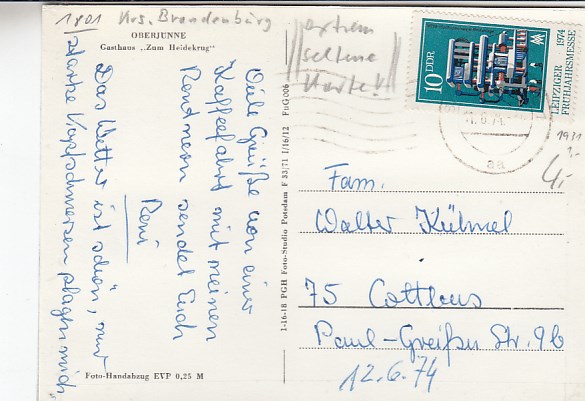 1801 Krs. Brandenburg
OBERJÜNNE
Gasthaus „Zum Heidekrug"
extrem
seltene
Karte!
10 DDR
LEIPZIGER
FRÜHJAHRSMESSE
1974
6.74
aa
1971
4,-
Viele Grüße von einer
Kaffeefahrt mit meinen
Rentnern sendet Euch
Reni
Das Wetter ist schön, nur
starke Kopfschmerzen plagen mich
1-16-18 PGH Foto-Studio Potsdam F 33/71 I/16/12 FuG 006
Foto-Handabzug EVP 0,25 M
Fam.
Walter Kühmel
75 Cottbus
Paul-Greifzu Str. 9b
12.6.74